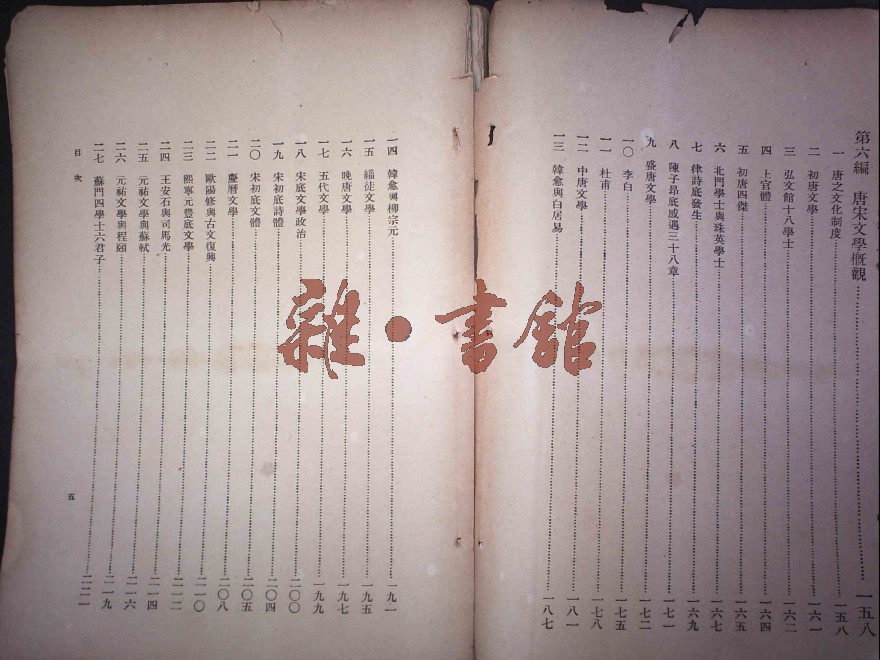 第六編　唐宋文學概觀……一五八
一　唐之文化制度……一五八
二　初唐文學……一六一
三　弘文館十八學士……一六二
四　上官體……一六四
五　初唐四傑……一六五
六　北門學士與珠英學士……一六七
七　律詩底發生……一六九
八　陳子昂底感遇三十八章……一七一
九　盛唐文學……一七二
一〇　李白……一七五
一一　杜甫……一七八
一二　中唐文學……一八一
一三　韓愈與白居易……一八七
一四　韓愈與柳宗元……一九一
一五　緇徒文學……一九五
一六　晚唐文學……一九七
一七　五代文學……一九九
一八　宋底文學政治……二〇〇
一九　宋初底詩體……二〇四
二〇　宋初底文體……二〇五
二一　慶曆文學……二〇八
二二　歐陽修與古文復興……二一〇
二三　熙寧元豐底文學……二一二
二四　王安石與司馬光……二一四
二五　元祐文學與蘇軾……二一六
二六　元祐文學與程頤……二一九
二七　蘇門四學士六君子……二二一
目次　五
雜·書館